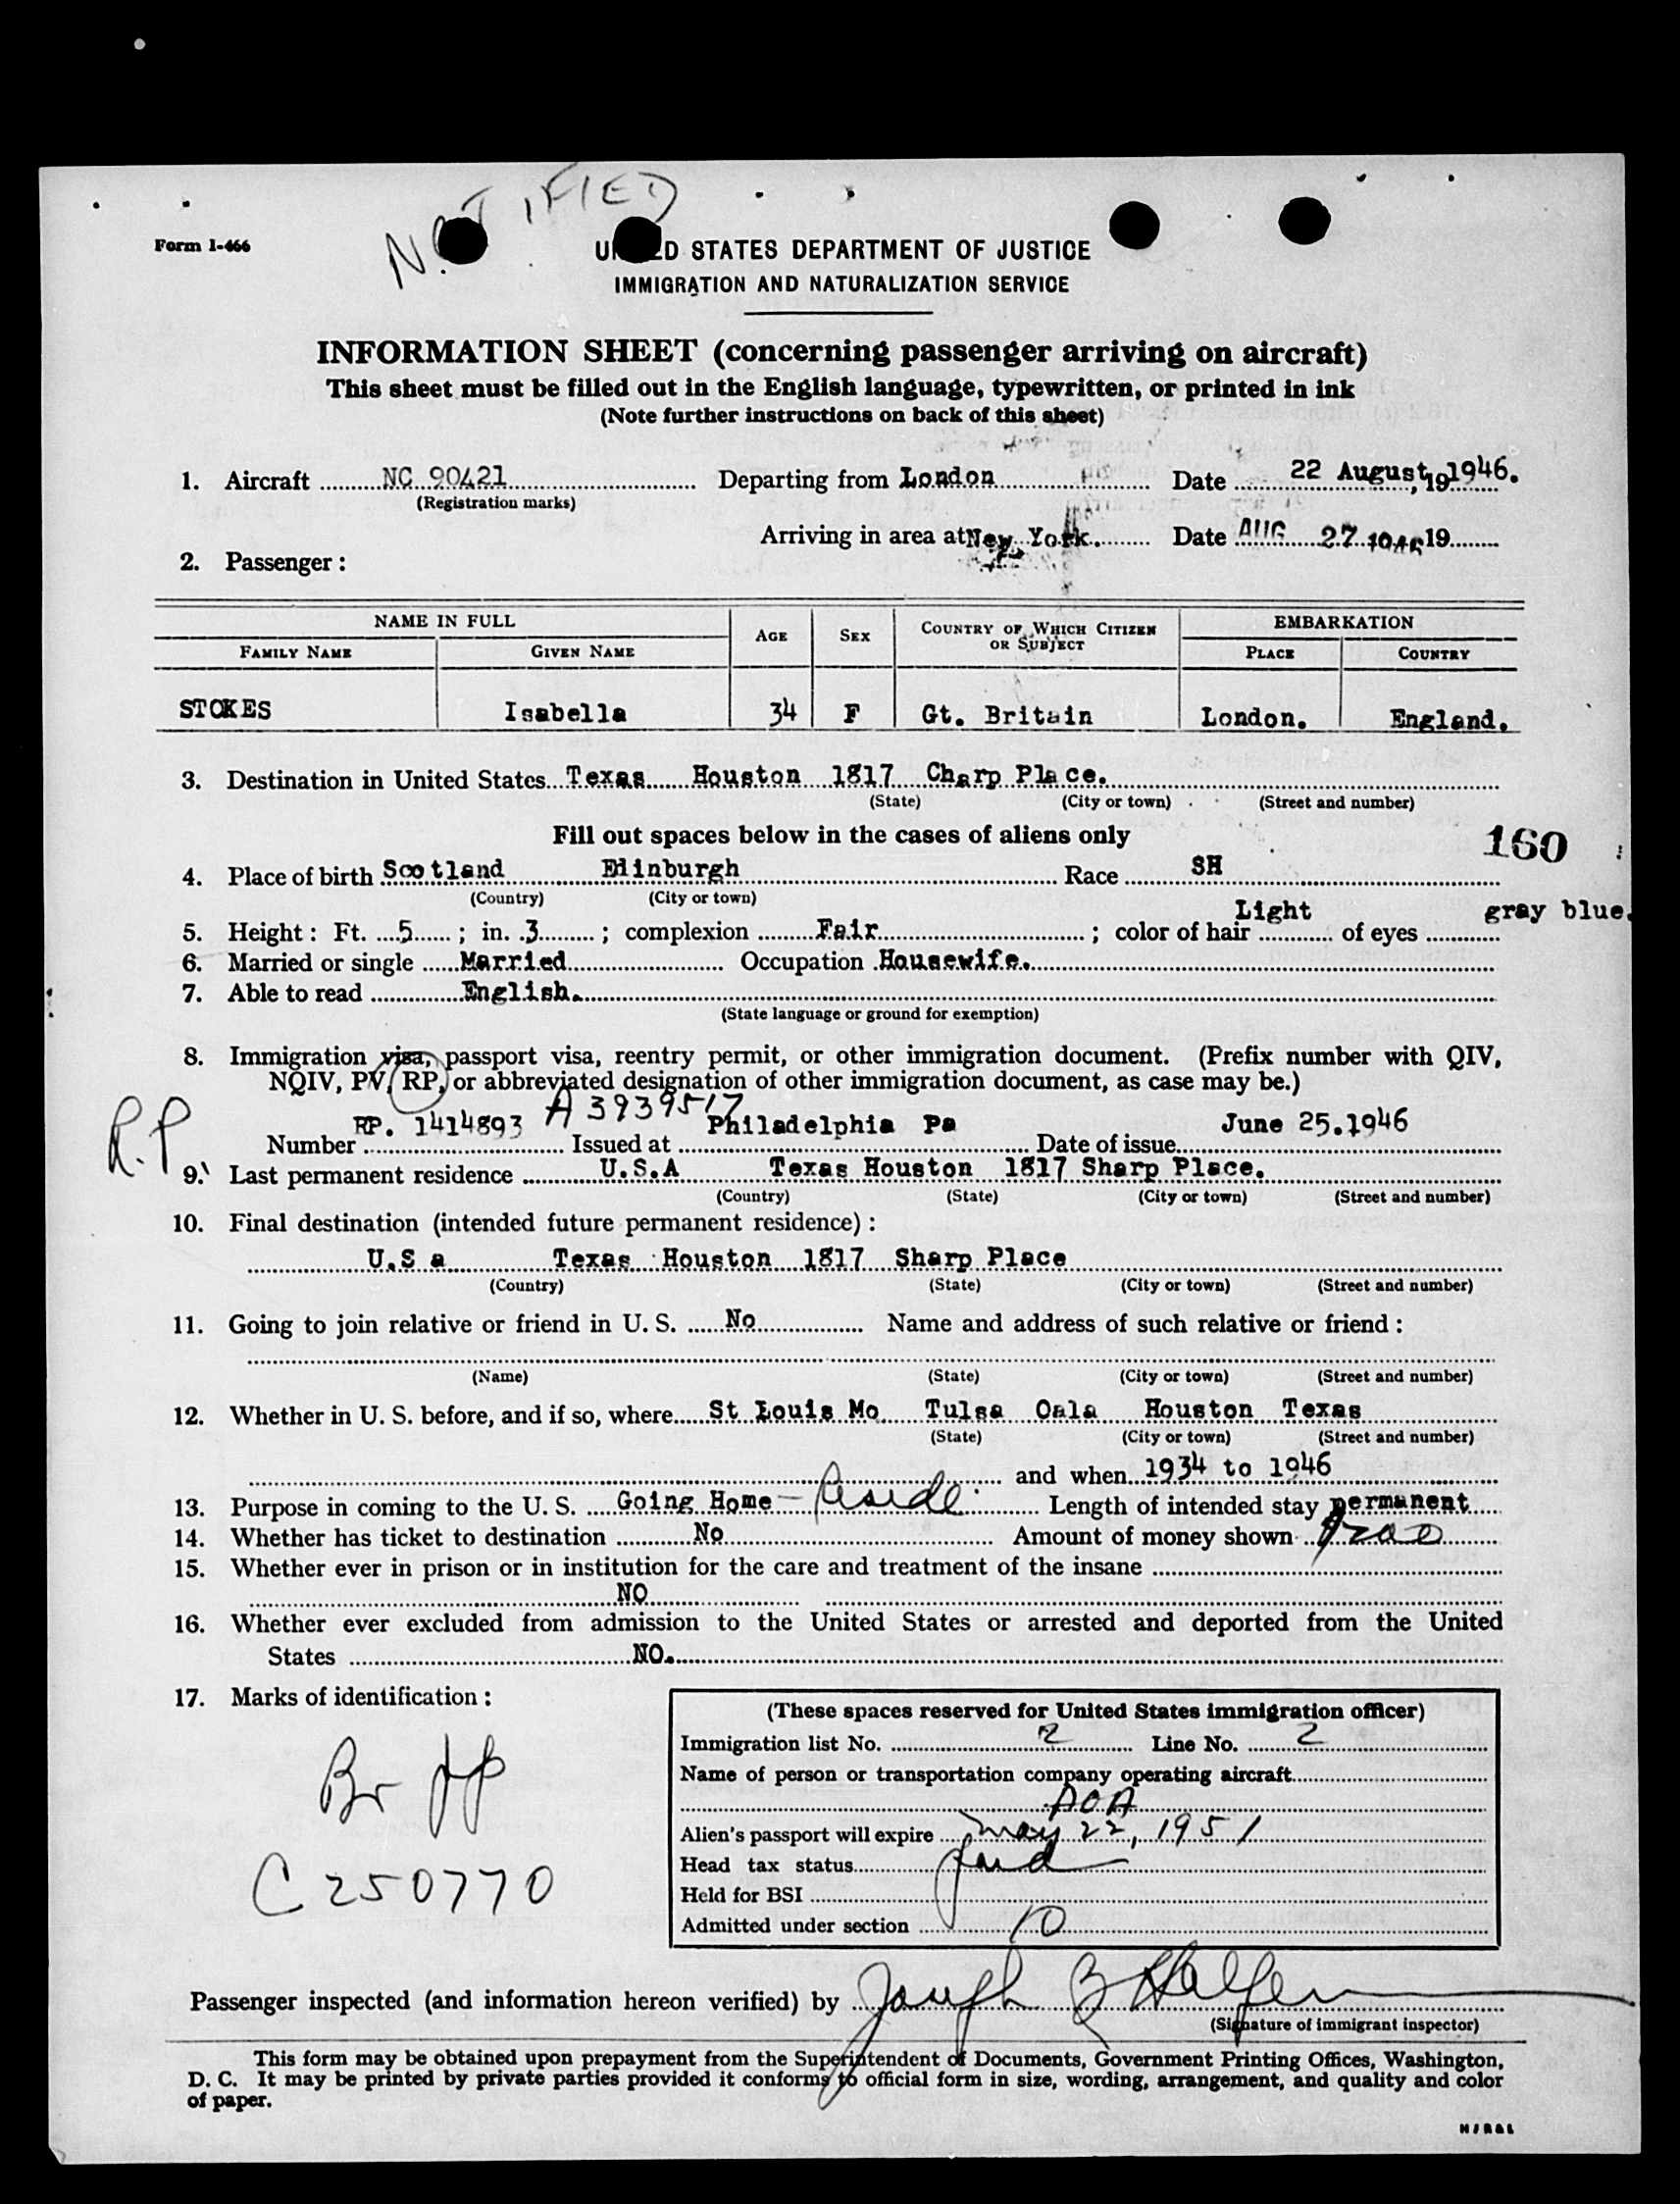 NOTIFIED
Form I-466
UNITED STATES DEPARTMENT OF JUSTICE
IMMIGRATION AND NATURALIZATION SERVICE
INFORMATION SHEET (concerning passenger arriving on aircraft)
This sheet must be filled out in the English language, typewritten, or printed in ink
(Note further instructions on back of this sheet)
1. Aircraft NC 90421 Departing from London Date 22 August, 19 1946.
(Registration marks)
Arriving in area at New York. Date AUG 27 1946 19
2. Passenger:
NAME IN FULL AGE SEX COUNTRY OF WHICH CITIZEN OR SUBJECT EMBARKATION
FAMILY NAME GIVEN NAME PLACE COUNTRY
STOKES Isabella 34 F Gt. Britain London. England.
3. Destination in United States Texas Houston 1817 Charp Place.
(State) (City or town) (Street and number)
Fill out spaces below in the cases of aliens only 160
4. Place of birth Scotland Edinburgh Race SH
(Country) (City or town)
5. Height: Ft. 5; in. 3; complexion Fair; color of hair Light of eyes gray blue.
6. Married or single Married Occupation Housewife.
7. Able to read English.
(State language or ground for exemption)
8. Immigration visa, passport visa, reentry permit, or other immigration document. (Prefix number with QIV,
NQIV, PV, RP, or abbreviated designation of other immigration document, as case may be.)
R.P
Number RP. 1414893 A 3939517 Issued at Philadelphia Pa Date of issue June 25.1946
9. Last permanent residence U.S.A Texas Houston 1817 Sharp Place.
(Country) (State) (City or town) (Street and number)
10. Final destination (intended future permanent residence):
U.S a Texas Houston 1817 Sharp Place
(Country) (State) (City or town) (Street and number)
11. Going to join relative or friend in U. S. No Name and address of such relative or friend:
(Name) (State) (City or town) (Street and number)
12. Whether in U. S. before, and if so, where St Louis Mo Tulsa Oala Houston Texas
(State) (City or town) (Street and number)
and when 1934 to 1946
13. Purpose in coming to the U. S. Going Home - Reside Length of intended stay permanent
14. Whether has ticket to destination No Amount of money shown $200
15. Whether ever in prison or in institution for the care and treatment of the insane
NO
16. Whether ever excluded from admission to the United States or arrested and deported from the United
States NO.
17. Marks of identification:
Br pp
C 250770
(These spaces reserved for United States immigration officer)
Immigration list No. 2 Line No. 2
Name of person or transportation company operating aircraft
AOA
Alien's passport will expire May 22, 1951
Head tax status paid
Held for BSI
Admitted under section 10
Passenger inspected (and information hereon verified) by Joseph B Halfern
(Signature of immigrant inspector)
This form may be obtained upon prepayment from the Superintendent of Documents, Government Printing Offices, Washington,
D. C. It may be printed by private parties provided it conforms to official form in size, wording, arrangement, and quality and color
of paper.